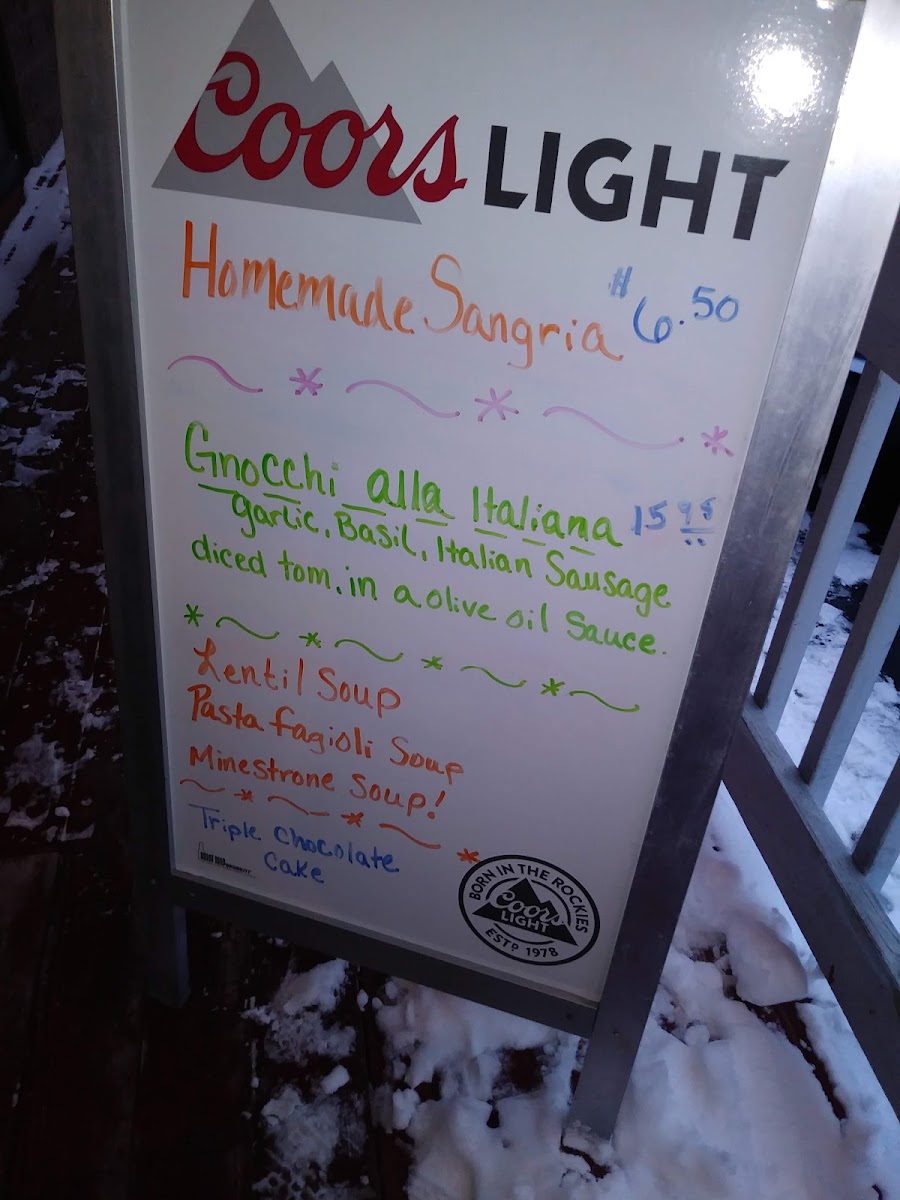 Coors LIGHT
Homemade Sangria $6.50
Gnocchi alla Italiana 15 95
garlic, Basil, Italian Sausage
diced tom. in a olive oil Sauce.
Lentil Soup
Pasta fagioli Soup
Minestrone Soup!
Triple Chocolate
Cake
BORN IN THE ROCKIES
Coors
LIGHT
ESTD 1978